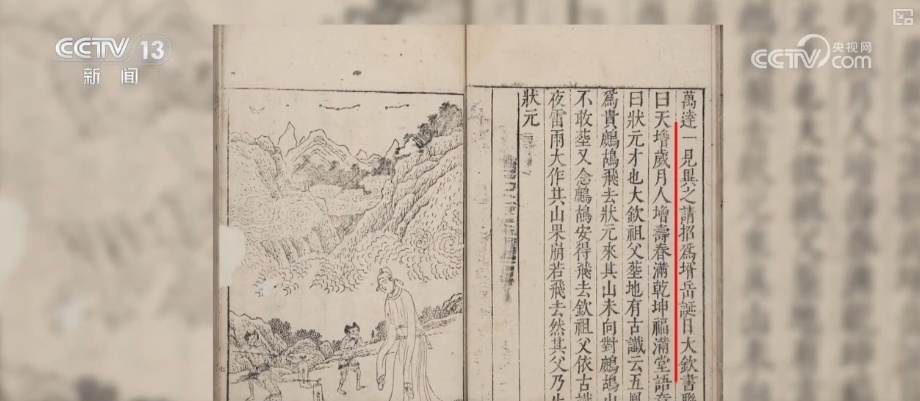 CCTV 13
新闻
CCTV 央视网
com
萬達一見異之請招爲壻岳誕日大欽書聯
曰天增歲月人增壽春滿乾坤福滿堂語
曰狀元才也大欽祖父塟地有古讖云五鳳
爲貴鷓鴣飛去狀元來其山未向對鷓鴣山
不敢塟又念鷓鴣安得飛去欽祖父依古
夜雷雨大作其山果崩若飛去然其父乃
狀元